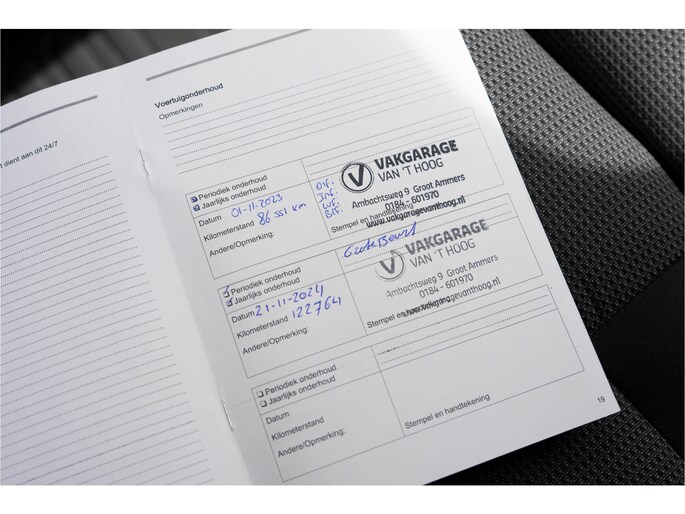 t dient aan dit 24/7
Voertuigonderhoud
Opmerkingen
Periodiek onderhoud
Jaarlijks onderhoud
Datum 01-11-2023
Kilometerstand 86 551 km
Andere/Opmerking:
VAKGARAGE
VAN 'T HOOG
Ambachtsweg 9 Groot Ammers
0184 - 601970
www.vakgaragevanthoog.nl
Stempel en handtekening
Periodiek onderhoud
Jaarlijks onderhoud
Datum 21-11-2024
Kilometerstand 122764
Andere/Opmerking:
Grote Beurt
VAKGARAGE
VAN 'T HOOG
Ambachtsweg 9 Groot Ammers
0184 - 601970
www.vakgaragevanthoog.nl
Stempel en handtekening
Periodiek onderhoud
Jaarlijks onderhoud
Datum
Kilometerstand
Andere/Opmerking:
Stempel en handtekening
19